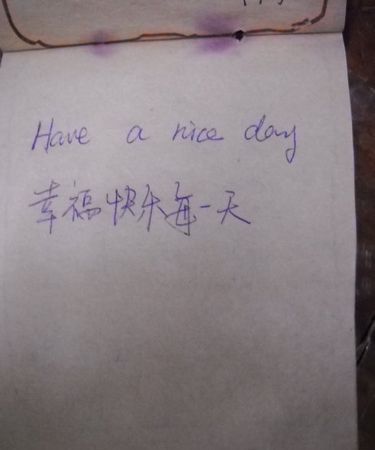 Have a nice day
幸福快乐每一天